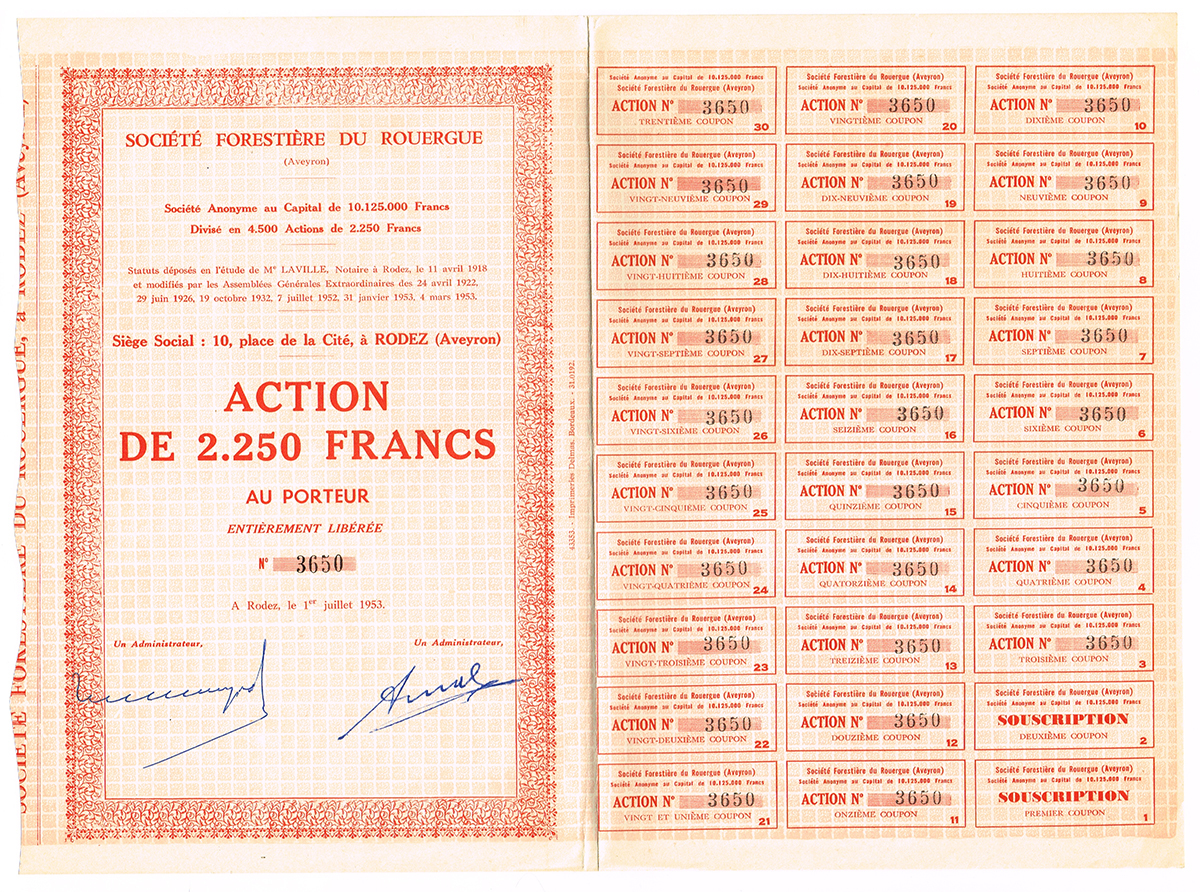 SOCIÉTÉ FORESTIÈRE DU ROUERGUE, à RODEZ (Aveyron)
SOCIÉTÉ FORESTIÈRE DU ROUERGUE
(Aveyron)
Société Anonyme au Capital de 10.125.000 Francs
Divisé en 4.500 Actions de 2.250 Francs
Statuts déposés en l'étude de Mᵉ LAVILLE, Notaire à Rodez, le 11 avril 1918
et modifiés par les Assemblées Générales Extraordinaires des 24 avril 1922,
29 juin 1926, 19 octobre 1932, 7 juillet 1952, 31 janvier 1953, 4 mars 1953.
Siège Social : 10, place de la Cité, à RODEZ (Aveyron)
ACTION
DE 2.250 FRANCS
AU PORTEUR
ENTIÈREMENT LIBÉRÉE
N° 3650
A Rodez, le 1er juillet 1953.
Un Administrateur, Un Administrateur,
43353. - Imprimeries Delmas, Bordeaux. - 31.0192.
Société Anonyme au Capital de 10.125.000 Francs
Société Forestière du Rouergue (Aveyron)
ACTION N° 3650
TRENTIÈME COUPON
30
Société Forestière du Rouergue (Aveyron)
Société Anonyme au Capital de 10.125.000 Francs
ACTION N° 3650
VINGTIÈME COUPON
20
Société Forestière du Rouergue (Aveyron)
Société Anonyme au Capital de 10.125.000 Francs
ACTION N° 3650
DIXIÈME COUPON
10
Société Forestière du Rouergue (Aveyron)
Société Anonyme au Capital de 10.125.000 Francs
ACTION N° 3650
VINGT-NEUVIÈME COUPON
29
Société Forestière du Rouergue (Aveyron)
Société Anonyme au Capital de 10.125.000 Francs
ACTION N° 3650
DIX-NEUVIÈME COUPON
19
Société Forestière du Rouergue (Aveyron)
Société Anonyme au Capital de 10.125.000 Francs
ACTION N° 3650
NEUVIÈME COUPON
9
Société Forestière du Rouergue (Aveyron)
Société Anonyme au Capital de 10.125.000 Francs
ACTION N° 3650
VINGT-HUITIÈME COUPON
28
Société Forestière du Rouergue (Aveyron)
Société Anonyme au Capital de 10.125.000 Francs
ACTION N° 3650
DIX-HUITIÈME COUPON
18
Société Forestière du Rouergue (Aveyron)
Société Anonyme au Capital de 10.125.000 Francs
ACTION N° 3650
HUITIÈME COUPON
8
Société Forestière du Rouergue (Aveyron)
Société Anonyme au Capital de 10.125.000 Francs
ACTION N° 3650
VINGT-SEPTIÈME COUPON
27
Société Forestière du Rouergue (Aveyron)
Société Anonyme au Capital de 10.125.000 Francs
ACTION N° 3650
DIX-SEPTIÈME COUPON
17
Société Forestière du Rouergue (Aveyron)
Société Anonyme au Capital de 10.125.000 Francs
ACTION N° 3650
SEPTIÈME COUPON
7
Société Forestière du Rouergue (Aveyron)
Société Anonyme au Capital de 10.125.000 Francs
ACTION N° 3650
VINGT-SIXIÈME COUPON
26
Société Forestière du Rouergue (Aveyron)
Société Anonyme au Capital de 10.125.000 Francs
ACTION N° 3650
SEIZIÈME COUPON
16
Société Forestière du Rouergue (Aveyron)
Société Anonyme au Capital de 10.125.000 Francs
ACTION N° 3650
SIXIÈME COUPON
6
Société Forestière du Rouergue (Aveyron)
Société Anonyme au Capital de 10.125.000 Francs
ACTION N° 3650
VINGT-CINQUIÈME COUPON
25
Société Forestière du Rouergue (Aveyron)
Société Anonyme au Capital de 10.125.000 Francs
ACTION N° 3650
QUINZIÈME COUPON
15
Société Forestière du Rouergue (Aveyron)
Société Anonyme au Capital de 10.125.000 Francs
ACTION N° 3650
CINQUIÈME COUPON
5
Société Forestière du Rouergue (Aveyron)
Société Anonyme au Capital de 10.125.000 Francs
ACTION N° 3650
VINGT-QUATRIÈME COUPON
24
Société Forestière du Rouergue (Aveyron)
Société Anonyme au Capital de 10.125.000 Francs
ACTION N° 3650
QUATORZIÈME COUPON
14
Société Forestière du Rouergue (Aveyron)
Société Anonyme au Capital de 10.125.000 Francs
ACTION N° 3650
QUATRIÈME COUPON
4
Société Forestière du Rouergue (Aveyron)
Société Anonyme au Capital de 10.125.000 Francs
ACTION N° 3650
VINGT-TROISIÈME COUPON
23
Société Forestière du Rouergue (Aveyron)
Société Anonyme au Capital de 10.125.000 Francs
ACTION N° 3650
TREIZIÈME COUPON
13
Société Forestière du Rouergue (Aveyron)
Société Anonyme au Capital de 10.125.000 Francs
ACTION N° 3650
TROISIÈME COUPON
3
Société Forestière du Rouergue (Aveyron)
Société Anonyme au Capital de 10.125.000 Francs
ACTION N° 3650
VINGT-DEUXIÈME COUPON
22
Société Forestière du Rouergue (Aveyron)
Société Anonyme au Capital de 10.125.000 Francs
ACTION N° 3650
DOUZIÈME COUPON
12
Société Forestière du Rouergue (Aveyron)
Société Anonyme au Capital de 10.125.000 Francs
SOUSCRIPTION
DEUXIÈME COUPON
2
Société Forestière du Rouergue (Aveyron)
Société Anonyme au Capital de 10.125.000 Francs
ACTION N° 3650
VINGT ET UNIÈME COUPON
21
Société Forestière du Rouergue (Aveyron)
Société Anonyme au Capital de 10.125.000 Francs
ACTION N° 3650
ONZIÈME COUPON
11
Société Forestière du Rouergue (Aveyron)
Société Anonyme au Capital de 10.125.000 Francs
SOUSCRIPTION
PREMIER COUPON
1